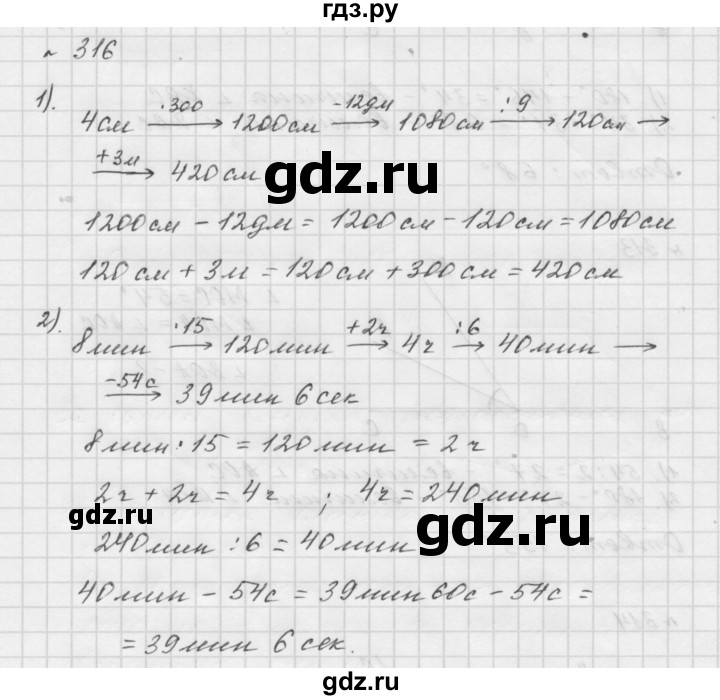 гдз.ру
№ 316
1). 4см —·300→ 1200см —-12дм→ 1080см —:9→ 120см →
—+3м→ 420см
gdz.ru
gdz.ru
1200см - 12дм = 1200см - 120см = 1080см
120см + 3м = 120см + 300см = 420см
2). 8мин —·15→ 120мин —+2ч→ 4ч —:6→ 40мин →
—-54с→ 39мин 6сек
8мин · 15 = 120мин = 2ч
2ч + 2ч = 4ч ; 4ч = 240мин
gdz.ru
gdz.ru
240мин : 6 = 40мин
40мин - 54с = 39мин 60с - 54с =
= 39мин 6сек.
gdz.ru
gdz.ru